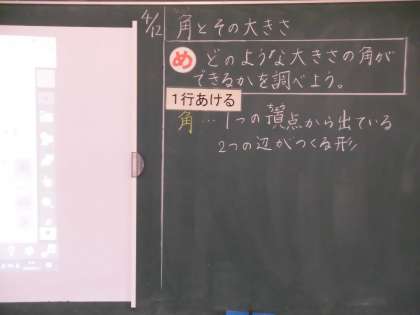 4/12 角とその大きさ
め どのような大きさの角が
できるかを調べよう。
1行あける
角…1つの頂点から出ている
2つの辺がつくる形